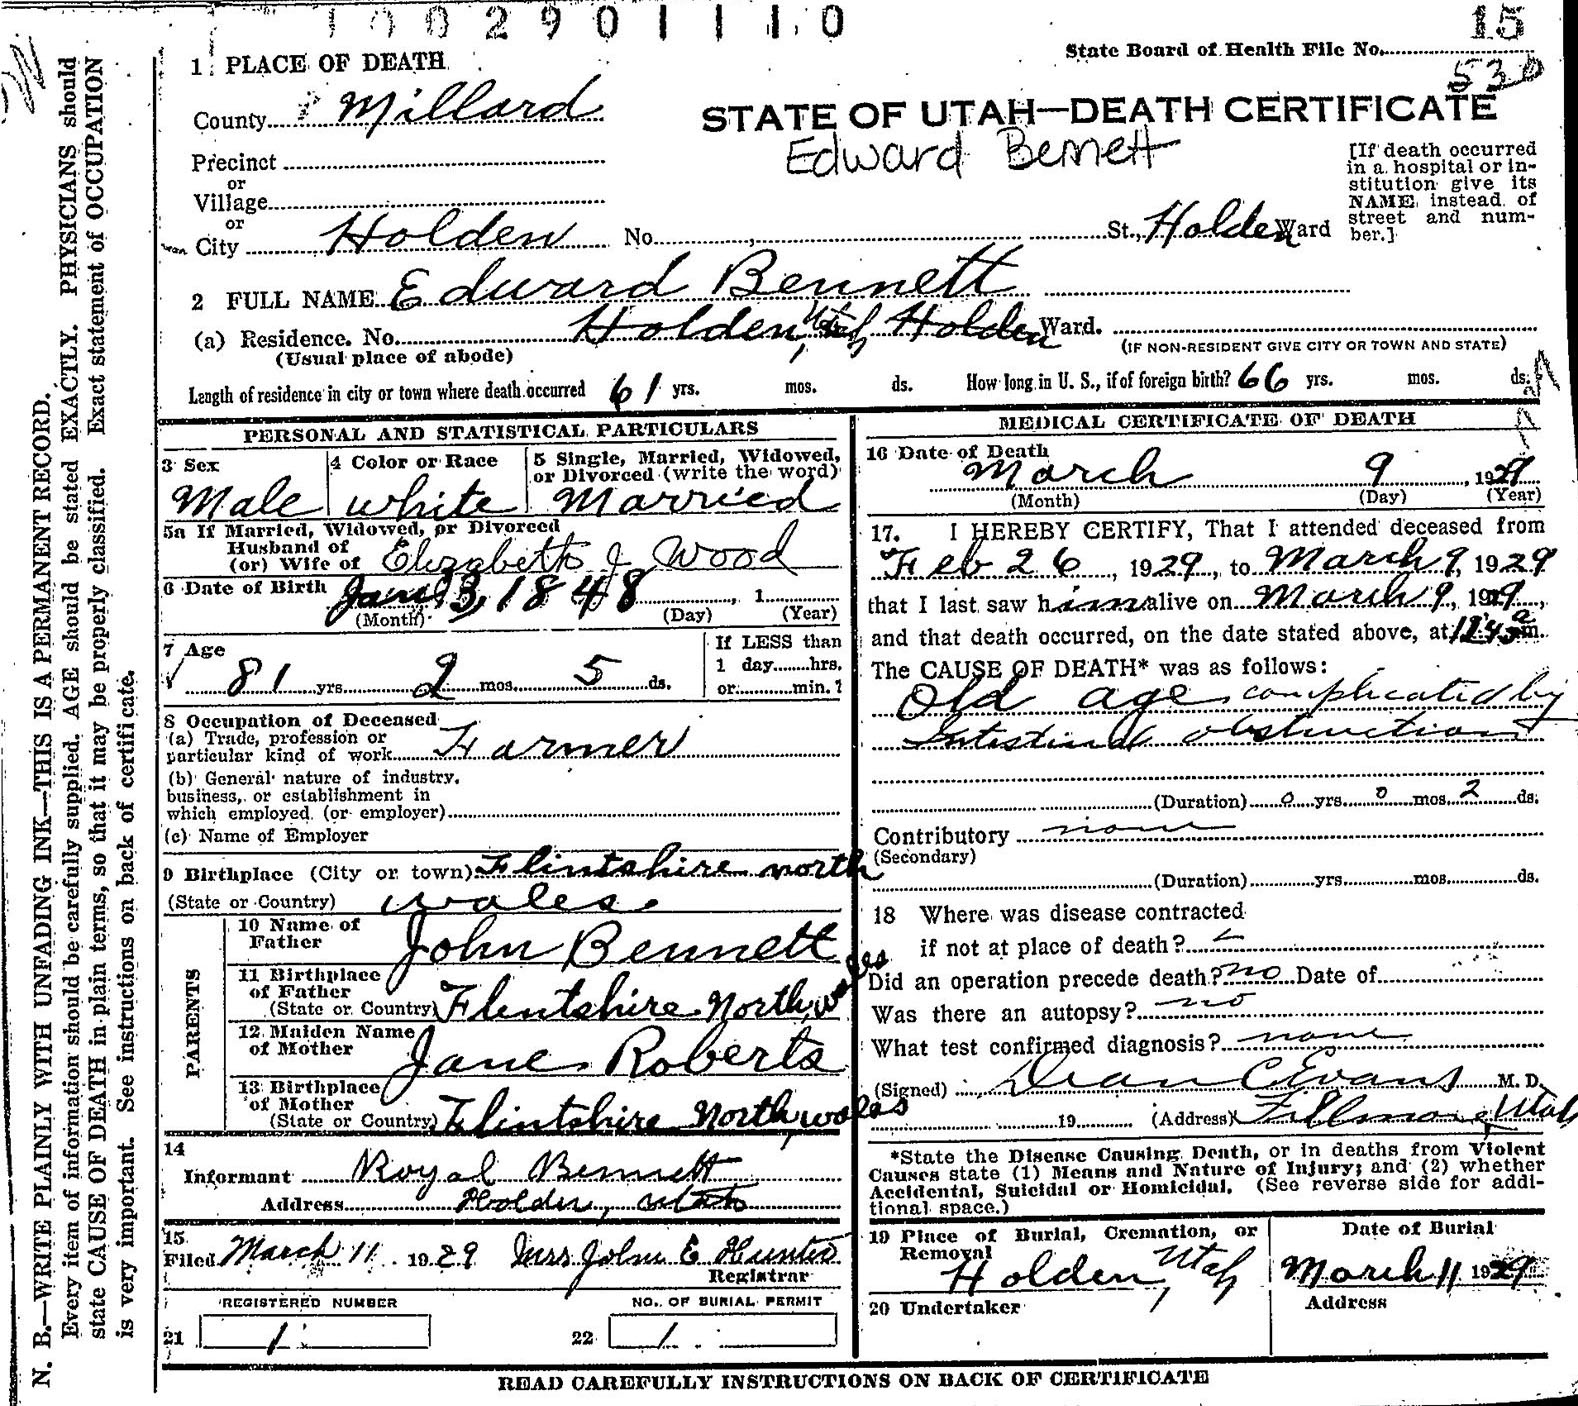 1002901110
15
State Board of Health File No.
530
1 PLACE OF DEATH
County Millard
STATE OF UTAH—DEATH CERTIFICATE
Edward Bennett
Precinct
or
Village
or
City Holden No. St., Holden Ward
[If death occurred
in a hospital or in-
stitution give its
NAME instead of
street and num-
ber.]
2 FULL NAME Edward Bennett
(a) Residence. No. Holden, Utah Holden Ward.
(Usual place of abode)
(IF NON-RESIDENT GIVE CITY OR TOWN AND STATE)
Length of residence in city or town where death occurred 61 yrs. mos. ds. How long in U. S., if of foreign birth? 66 yrs. mos. ds.
PERSONAL AND STATISTICAL PARTICULARS
3 Sex
Male
4 Color or Race
white
5 Single, Married, Widowed,
or Divorced (write the word)
Married
5a If Married, Widowed, or Divorced
Husband of
(or) Wife of Elizabeth J Wood
6 Date of Birth Jan. 3, 1848, 1
(Month) (Day) (Year)
7 Age
81 yrs. 2 mos. 5 ds.
If LESS than
1 day hrs.
or min.?
8 Occupation of Deceased
(a) Trade, profession or
particular kind of work Farmer
(b) General nature of industry,
business, or establishment in
which employed (or employer)
(c) Name of Employer
9 Birthplace (City or town) Flintshire north
(State or Country) wales.
PARENTS
10 Name of
Father John Bennett
11 Birthplace
of Father
(State or Country) Flintshire North, wales
12 Maiden Name
of Mother Jane Roberts
13 Birthplace
of Mother
(State or Country) Flintshire North, wales
14
Informant Royal Bennett
Address Holden, Utah
15
Filed March 11 1929 Mrs John E Hunter
Registrar
REGISTERED NUMBER
21 1
NO. OF BURIAL PERMIT
22 1
MEDICAL CERTIFICATE OF DEATH
16 Date of Death
March 9, 1929
(Month) (Day) (Year)
17. I HEREBY CERTIFY, That I attended deceased from
Feb 26, 1929, to March 9, 1929
that I last saw him alive on March 9, 1929,
and that death occurred, on the date stated above, at m.
The CAUSE OF DEATH* was as follows:
Old age complicated by
Intestinal obstruction
(Duration) 0 yrs. 0 mos. 2 ds.
Contributory none
(Secondary)
(Duration) yrs. mos. ds.
18 Where was disease contracted
if not at place of death?
Did an operation precede death? no Date of
Was there an autopsy? no
What test confirmed diagnosis? none
(Signed) Dean C Evans M. D.
19 (Address) Fillmore, Utah
*State the Disease Causing Death, or in deaths from Violent
Causes state (1) Means and Nature of Injury; and (2) whether
Accidental, Suicidal or Homicidal. (See reverse side for addi-
tional space.)
19 Place of Burial, Cremation, or
Removal
Holden, Utah
Date of Burial
March 11 1929
20 Undertaker
Address
READ CAREFULLY INSTRUCTIONS ON BACK OF CERTIFICATE
N. B.—WRITE PLAINLY WITH UNFADING INK—THIS IS A PERMANENT RECORD.
Every item of information should be carefully supplied. AGE should be stated EXACTLY. PHYSICIANS should
state CAUSE OF DEATH in plain terms, so that it may be properly classified. Exact statement of OCCUPATION
is very important. See instructions on back of certificate.